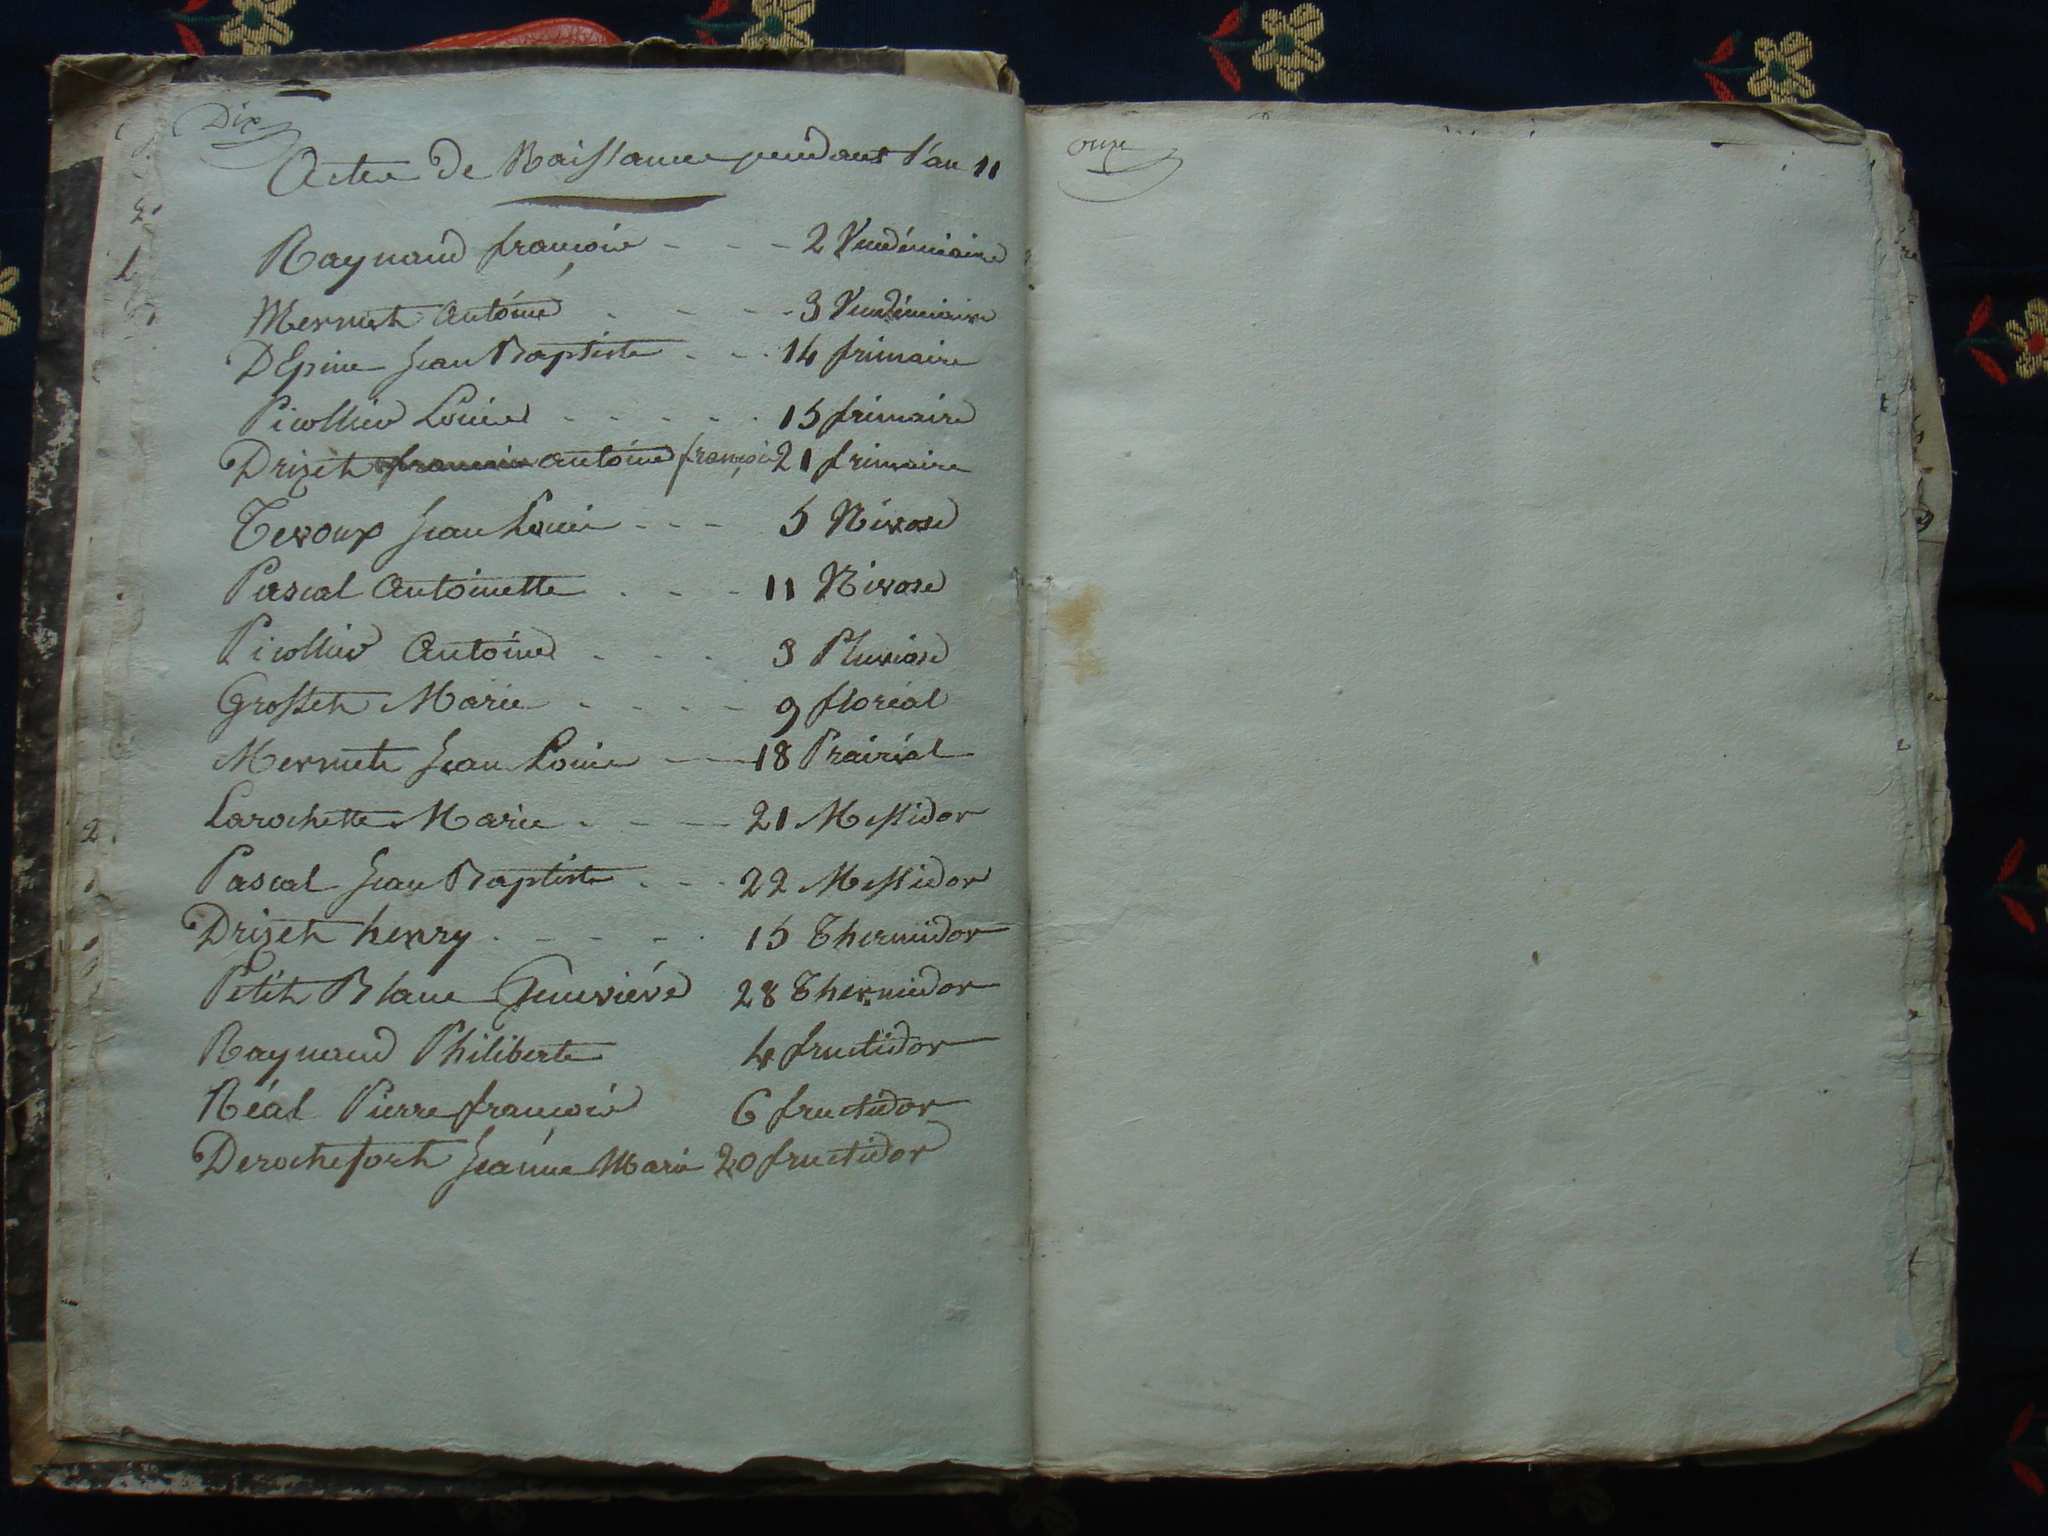 Dix
Actes de Naissance pendant l'an 11
Raynaud françois - - - 2 Vendémiaire
Mermet Antoine - - - - 3 Vendémiaire
DEpine Jean Baptiste - - - 14 frimaire
Picollier Louise - - - - - 15 frimaire
Drizet françois antoine françois 21 frimaire
Tevoux Jean Louis - - - 5 Nivose
Pascal Antoinette - - - 11 Nivose
Picollier Antoine - - - 3 Pluviose
Grosset Marie - - - - 9 floréal
Mermet Jean Louis - - 18 Prairial
Larochette Marie - - - 21 Messidor
Pascal Jean Baptiste - - - 22 Messidor
Drizet henry - - - - - 15 Thermidor
Petit Blanc Geneviéve 28 Thermidor
Raynaud Philiberte 4 fructidor
Réal Pierre françois 6 fructidor
Derochefort Jeanne Marie 20 fructidor
onze